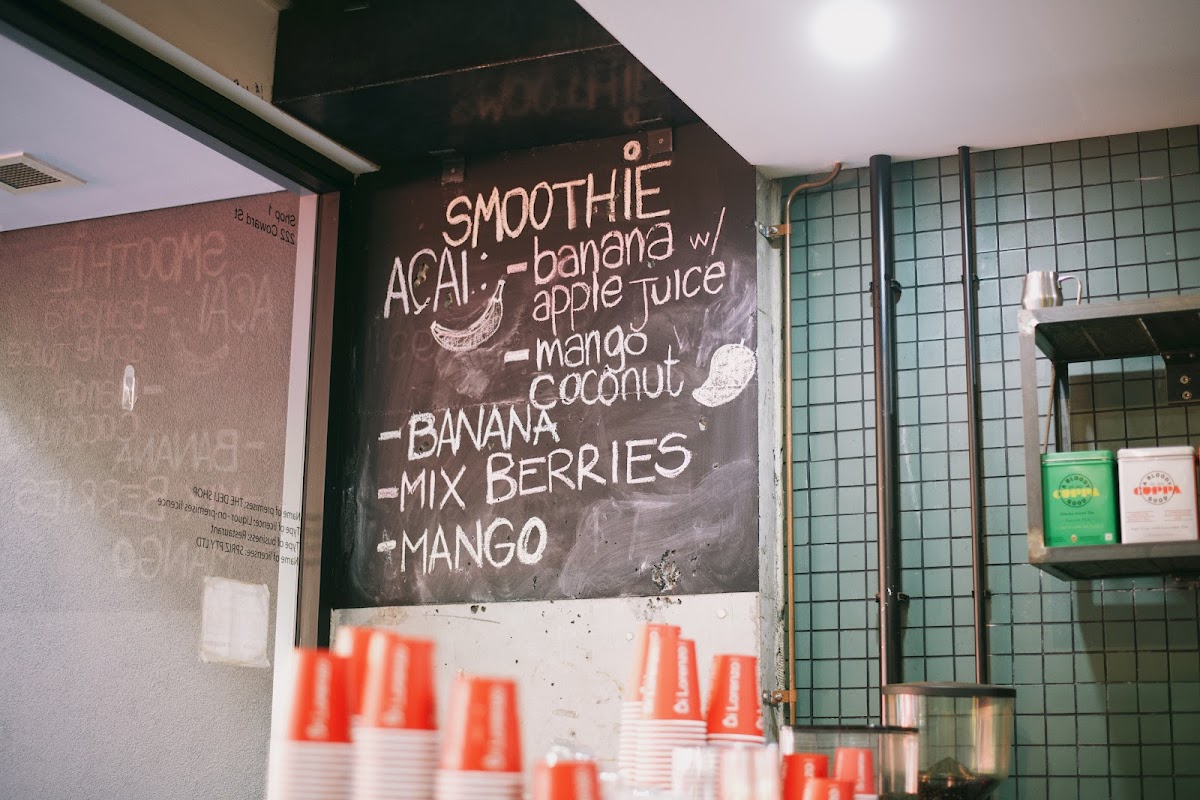 SMOOTHIE
AÇAI: - banana w/
apple juice
- mango
coconut
- BANANA
- MIX BERRIES
- MANGO
Shop 1
222 Coward St
Name of premises: THE DELI SHOP
Type of licence: Liquor-on-premises licence
Type of business: Restaurant
Name of licensee: SPRIZ PTY LTD
Di Lorenzo
Di Lorenzo
Di Lorenzo
Di Lorenzo
Di Lorenzo
Di Lorenzo
A BLOODY
CUPPA
GOOD
A BLOODY
CUPPA
GOOD